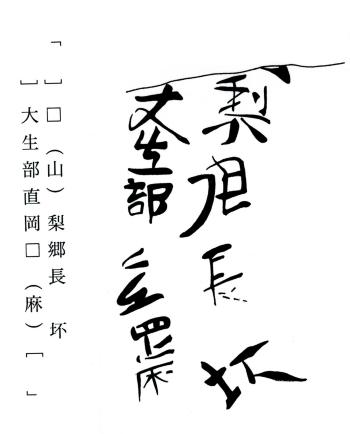 梨郷長 坏
大生部直
「 ］□（山）梨郷長 坏
］大生部直岡□（麻）［ 」